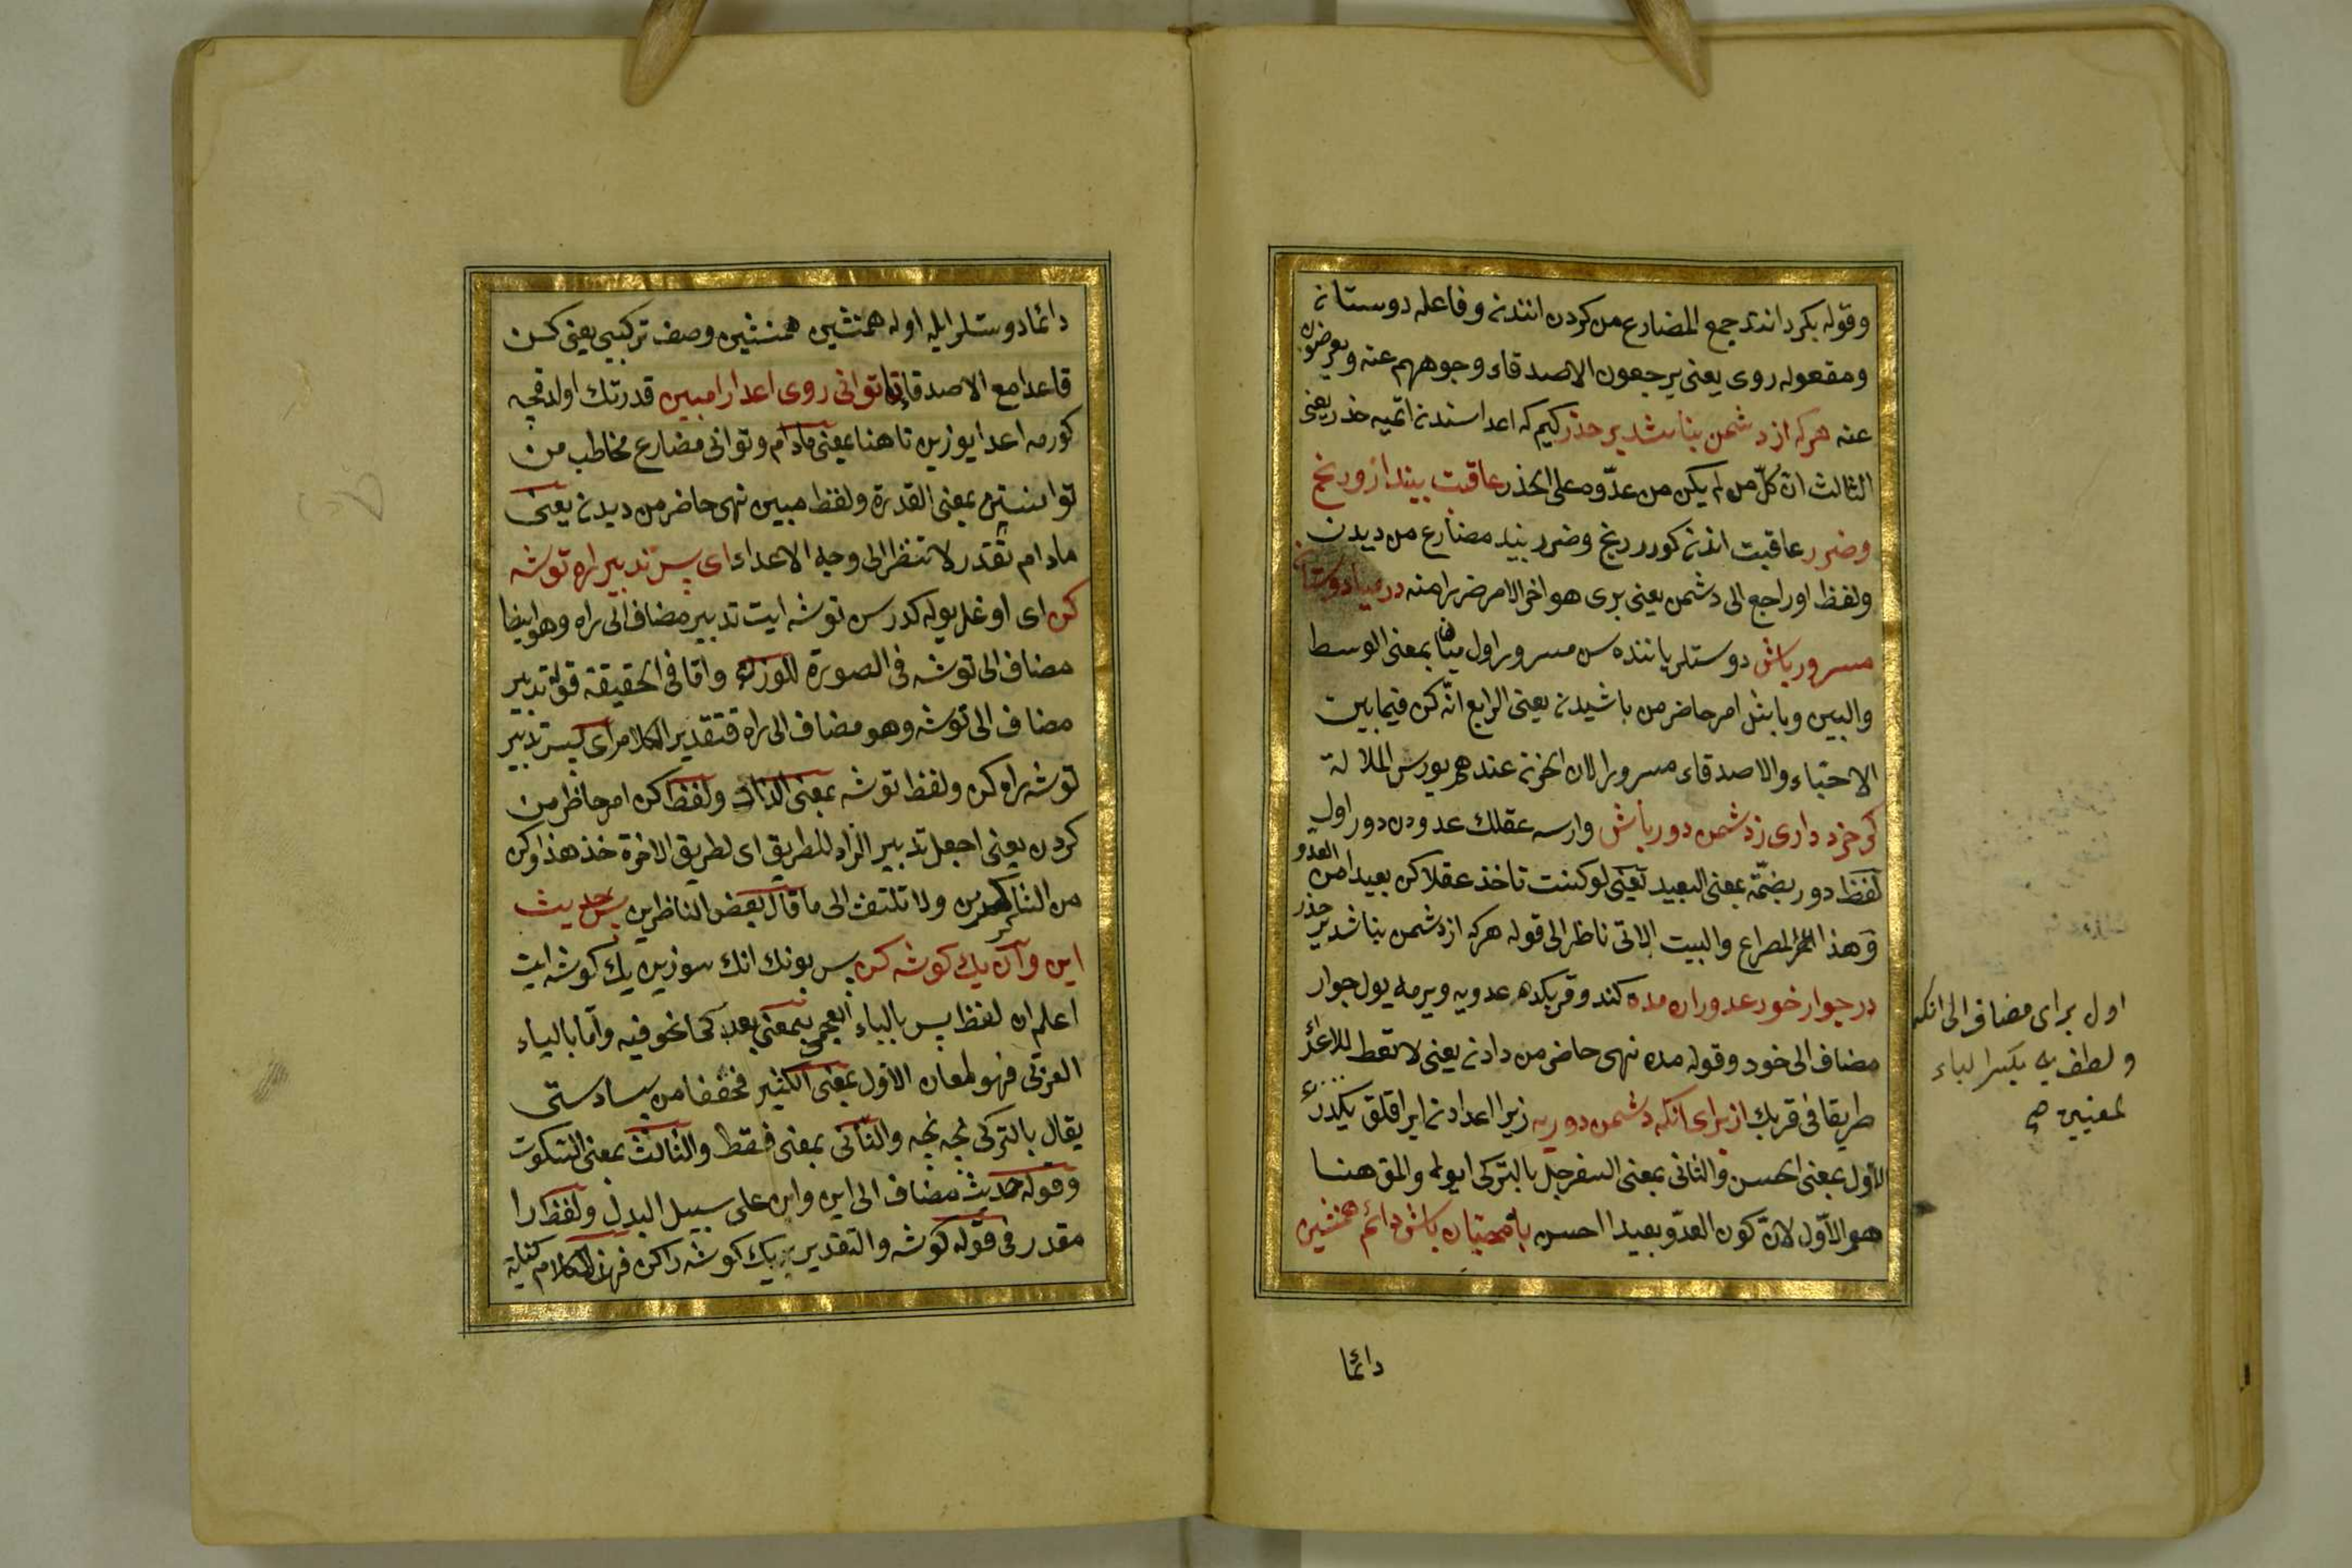 وقوله بكردانند جمع المضارع من كردن انندن وفاعله دوستان
ومفعوله روى يعنى يرجعون الاصدقاء وجوههم عنه ويعرضون
عنه هركه از دشمن بناشد پر حذر كيم كه اعداسندن اتميه حذر يعنى
الثالث ان كلّ من لم يكن من عدّوه على الحذر عاقبت بيند ازو رنج
وضرر عاقبت اندن كورر رنج وضرر بيند مضارع من ديدن
ولفظ او راجع الى دشمن يعنى يرى هو اخر الامر ضررا منه در ميان دوستان
مسرور باش دوستلر ياننده سن مسرور اول ميان بمعنى الوسط
والبين وباش امر حاضر من باشيدن يعنى الرابع انّه كن فيما بين
الاحباء والاصدقاء مسرورا لان الحزن عندهم يورس الملالة
كر خرد دارى ز دشمن دور باش وارسه عقلك عدودن دور اول
لفظ دور بضمّة بمعنى البعيد يعنى لو كنت تاخذ عقلا كن بعيدا من العدو
وهذا المصراع والبيت الاتى ناظر الى قوله هركه از دشمن بناشد پر حذر
در جوار خود عدو را ره مده كندو قربكده عدويه ويرمه يول جوار
مضاف الى خود وقوله مده نهى حاضر من دادن يعنى لا تعط للاعداء
طريقا فى قربك از براى انكه دشمن دور به زيرا اعدادن ايراقلق يكدر
الاول بمعنى الحسن والثانى بمعنى السفرجل بالتركى ايوه والمق هنا
هو الاوّل لانّ كون العدوّ بعيدا احسن با محبّان باش دائم همنشين
دائما
اول براى مضاف الى انكه
ولطف به بكسر الباء
لمعنيين صح
دائما دوستلر ايله اوله همنشين همنشين وصف تركيبى يعنى كن
قاعدا مع الاصدقاء تا توانى روى اعدا را مبين قدرتك اولدقجه
كورمه اعدا يوزين تا هنا بمعنى مادام وتوانى مضارع مخاطب من
توانستن بمعنى القدرة ولفظ مبين نهى حاضر من ديدن يعنى
مادام تقدر لا تنظر الى وجه الاعداء اى پسر تدبير راه توشه
كن اى اوغل يوله كدرسن توشه ايت تدبير مضاف الى راه وهو ايضا
مضاف الى توشه فى الصورة للوزن وامّا فى الحقيقة قوله تدبير
مضاف الى توشه وهو مضاف الى راه فتقدير الكلام اى پسر تدبير
توشه راه كن ولفظ توشه بمعنى الزاد ولفظ كن امر حاضر من
كردن يعنى اجعل تدبير الزاد للطريق اى لطريق الاخرة خذ هذا وكن
من الشاكرين ولا تلتفت الى ما قال بعض الناظرين پس حديث
اين وآن يك كوشه كن پس بونك انك سوزين يك كوشه ايت
اعلم ان لفظ پس بالباء العجمى بمعنى بعد كما نحو فيه وامّا بالباء
العربى فهو لمعان الاوّل بمعنى الكثير مخففا من بسا دستى
يقال بالتركى نجه نجه والثانى بمعنى فقط والثالث بمعنى السكوت
وقوله حديث مضاف الى اين وان على سبيل البدل ولفظ را
مقدر فى قوله كوشه والتقدير يك كوشه را كن فهذا الكلام كناية